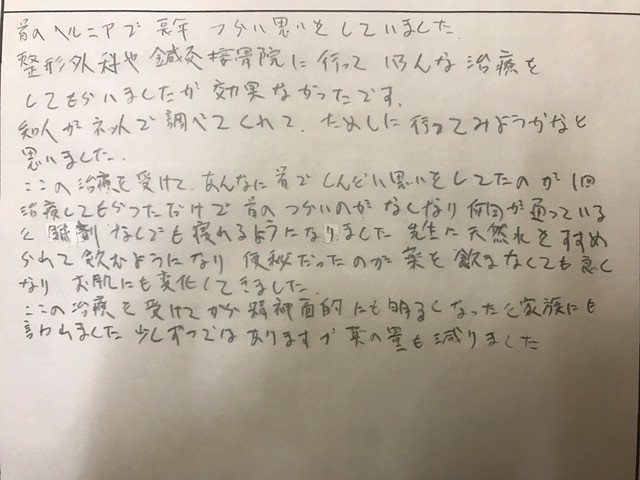 首のヘルニアで長年 つらい思いをしていました。
整形外科や鍼灸接骨院に行って いろんな治療を
してもらいましたが効果なかったです。
知人がネットで調べてくれて、ためしに行ってみようかなと
思いました。
ここの治療を受けて、あんなに首でしんどい思いをしてたのが1回
治療してもらっただけで首のつらいのがなくなり何回か通っている
と 眠剤なしでも寝れるようになりました 先生に天然水をすすめ
られて飲むようになり 便秘だったのが薬を飲まなくても良く
なり お肌にも変化してきました。
ここの治療を受けてから精神面的にも明るくなったと家族にも
言われました 少しずつではありますが薬の量も減りました